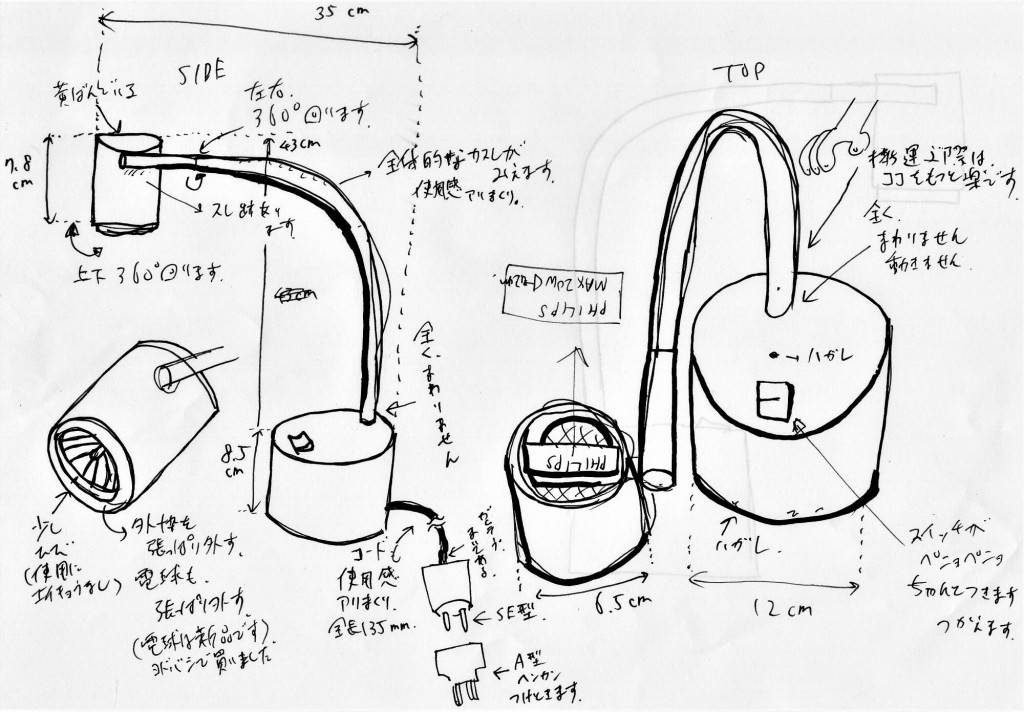 35 cm
SIDE
TOP
黄ばんでいる
左右
360°回ります。
43cm
7.8
cm
全体的なカスレが
みえます。
使用感
アリまくり。
スレあり
ます。
上下360°回ります。
運ぶ際は、
ココをもつと楽です。
全く、
まわりません
動きません。
PHILIPS
MAX 20W
ハガレ
全く、まわりません
8.5
cm
PHILIPS
少し
ヒビ
(使用に
エイキョウなし)
外枠を
張っぱり外す。
電球も、
張っぱり外す。
(電球は新品です)
ヨドバシで買いました
コードも
使用感
アリまくり。
全長135mm.
SE型.
A型
ヘンカン
つけときます。
ハガレ.
6.5cm
12cm
スイッチが
ペニョペニョ
ちゃんとつきます
つかえます。